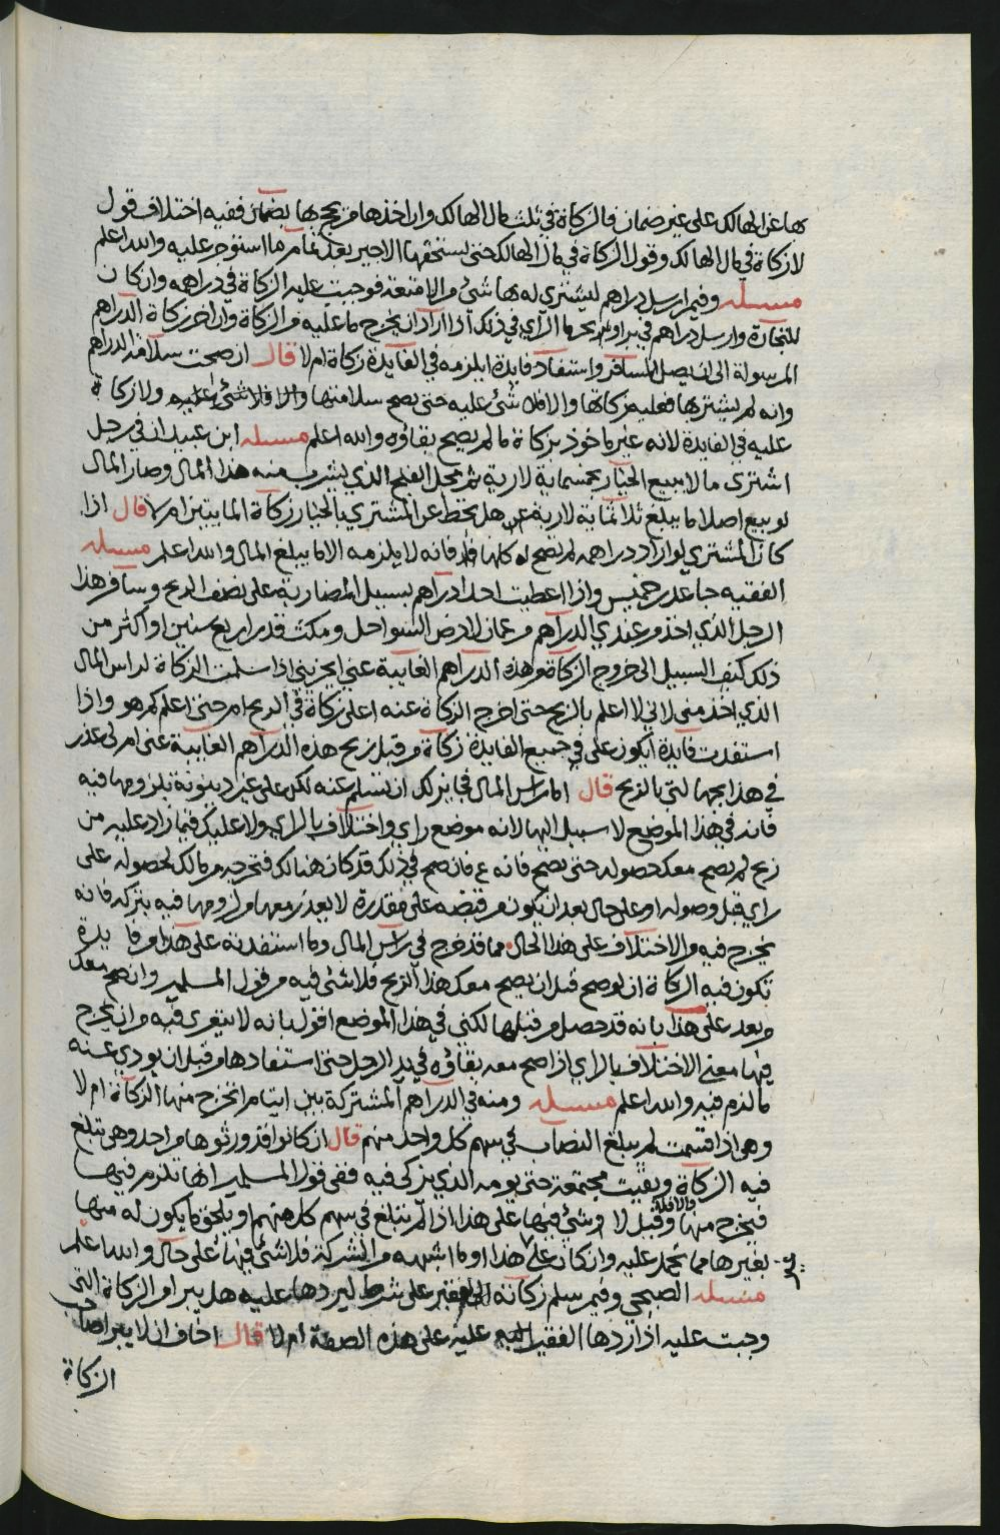 ها عن الهالك على غير ضمان فالزكاة في ثلث مال الهالك وان اخذها من يحج بها بضمان ففيه اختلاف قول
لا زكاة في مال الهالك وقول الزكاة في مال الهالك حتى يستحقها الاجير بعد تمام ما استوجر عليه والله اعلم
مسئله وفيمن ارسل دراهم ليشتري له بها شيء من الامتعة فوجبت عليه الزكاة في دراهمه وان كان
للتجارة وارسل دراهم في بر او بحر ما الراي في ذلك اذا اراد ان يخرج ما عليه من الزكاة وان اخر زكاة الدراهم
المرسولة الى ان يصل المسافر واستفاد فايدة ايلزمه في الفايدة زكاة ام لا قال ان صحت سلامة الدراهم
وانه لم يشتر بها فعليه زكاتها والا فلا شيء عليه حتى تصح سلامتها والا فلا شيء عليه ولا زكاة
عليه في الفايدة لانه غير ماخوذ بزكاة ما لم يصح بقاؤه والله اعلم مسئله ابن عبيدان في رجل
اشترى مالا ببيع الخيار بخمسماية لارية ثم محل الفلج الذي يشرب منه هذا المال وصار المال
لو بيع اصلا ما يبلغ ثلاثماية لارية هل تحط عن المشتري بالخيار زكاة المايتين ام لا قال اذا
كان المشتري لو اراد دراهمه لم تصح له كلها فانه لا يلزمه الا ما يبلغ المال والله اعلم مسئله
الفقيه جاعد بن خميس واذا اعطيت احدا دراهم بسبيل المضاربة على نصف الربح وسافر هذا
الرجل الذي اخذ من عندي الدراهم من عمان لارض السواحل ومكث قدر اربع سنين او اكثر من
ذلك كيف السبيل الى خروج الزكاة من هذه الدراهم الغايبة عني ايجزيني اذا سلمت الزكاة لراس المال
الذي اخذ مني لاني لا اعلم بالربح حتى اخرج الزكاة عنه اعلي زكاة في الربح ام حتى اعلم كم هو واذا
استفدت فايدة ايكون علي في جميع الفايدة زكاة من قبل ربح هذه الدراهم الغايبة عني ام لي عذر
في هذا بجهالتي بالربح قال اما راس المال فجايز لك ان تسلم عنه لكن على غير دينونة بلزومها فيه
فانه في هذا الموضع لا سبيل اليها لانه موضع راي واختلاف بالراي ولا عليك فيما زاد عليه من
ربح لم يصح معك حصوله حتى يصح فانه ع فان صح في ذلك قد كان هنالك فتخرجه من مالك لحصوله على
راي قبل وصوله او على حال بعد ان يكون من قبضه على مقدرة لا يعذر معها من لزومها فيه بتركه فانه
يخرج فيه من الاختلاف على هذا الحال مما قد خرج في راس المال وما استفدته على هذا من فايدة
تكون فيه الزكاة ان لو صح قبل ان يصح معك هذا الربح فلا شيء فيه من قول المسلمين وان صح معك
وبعد على هذا بانه قد حصل من قبلها لكني في هذا الموضع اقول بانه لا يتعرى فيه من ان يخرج
فيها معنى الاختلاف بالراي اذا صح معه بقاؤه في يد الرجل حتى استفادها من قبل ان يودي عنه
ما لزم فيه والله اعلم مسئله ومنه في الدراهم المشتركة بين ايتام اتخرج منها الزكاة ام لا
وهي اذا قسمت لم يبلغ النصاب في سهم كل واحد منهم قال ان كانوا قد ورثوها من احد وهي تبلغ
فيه الزكاة وبقيت مجتمعة حتى يومه الذي يزكي فيه ففي قول المسلمين انها تلزم فيها
فيخرج منها والا فلا وقيل لا شيء فيها على هذا اذا لم تبلغ في سهم كل منهم او يلحق ما يكون له منها
بغيرها مما يحمل عليه وان كان على هذا او ما اشبهه من الشركة فلا شيء فيها على حال والله اعلم
مسئله الصبحي وفيمن سلم زكاته الى الفقير على شرط ليردها عليه هل يبرا من الزكاة التي
وجبت عليه اذا ردها الفقير عليه على هذه الصفة ام لا قال اخاف ان لا يبرا صاحب
الزكاة